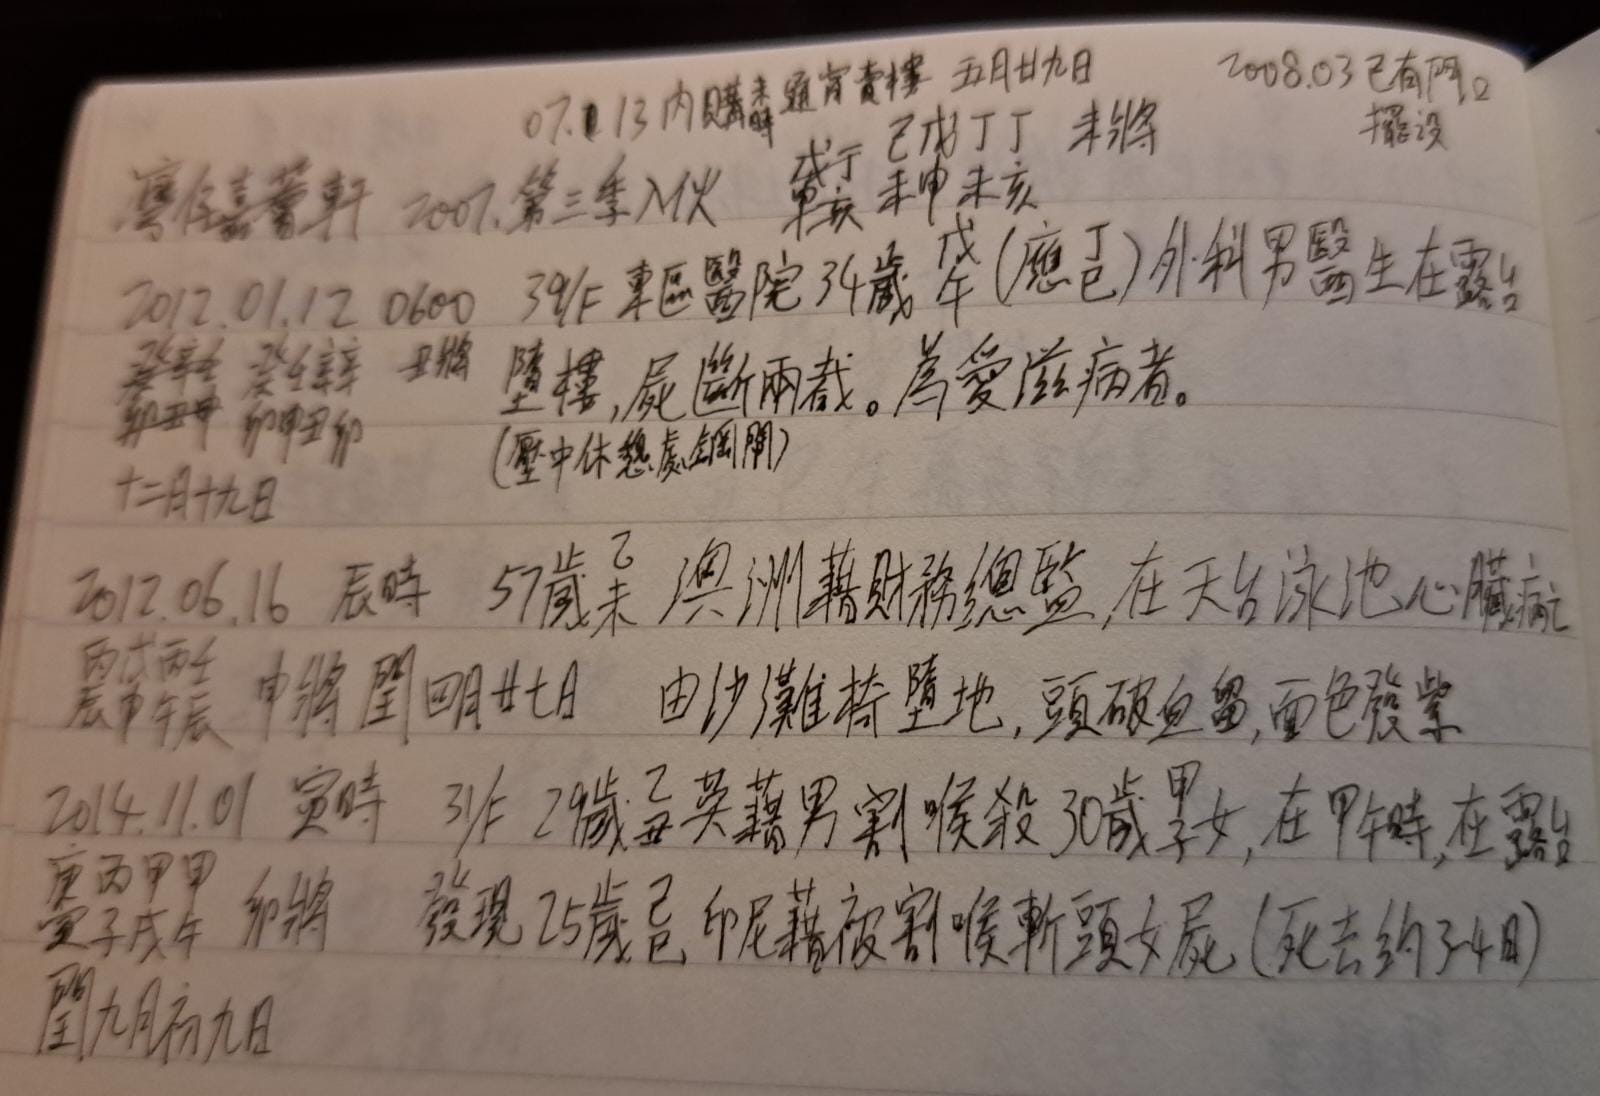 07.13 內購 未時 通宵賣樓 五月廿九日
2008.03 已有門口擺設
己戊丁丁 未將
未申未亥
嘉薈軒 2007.第三季入伙
2012.01.12 0600 39/F 東區醫院 34歲 戊午 (應丁巳) 外科男醫生在露台
丑將 墮樓，屍斷兩截。為愛滋病者。
(壓中休憩處鋼閘)
十二月十九日
2012.06.16 辰時 57歲 乙未 澳洲藉財務總監，在天台泳池心臟病亡
丙戊丙壬
辰申午辰
申將 閏四月廿七日 由沙灘椅墮地，頭破血畱，面色發紫
2014.11.01 寅時 31/F 29歲 乙丑 英藉男割喉殺30歲 甲子 女，在甲午時，在露台
庚丙甲甲
寅子戌午
卯將 發現25歲 己巳 印尼藉被割喉斬頭女屍 (死去約3-4日)
閏九月初九日